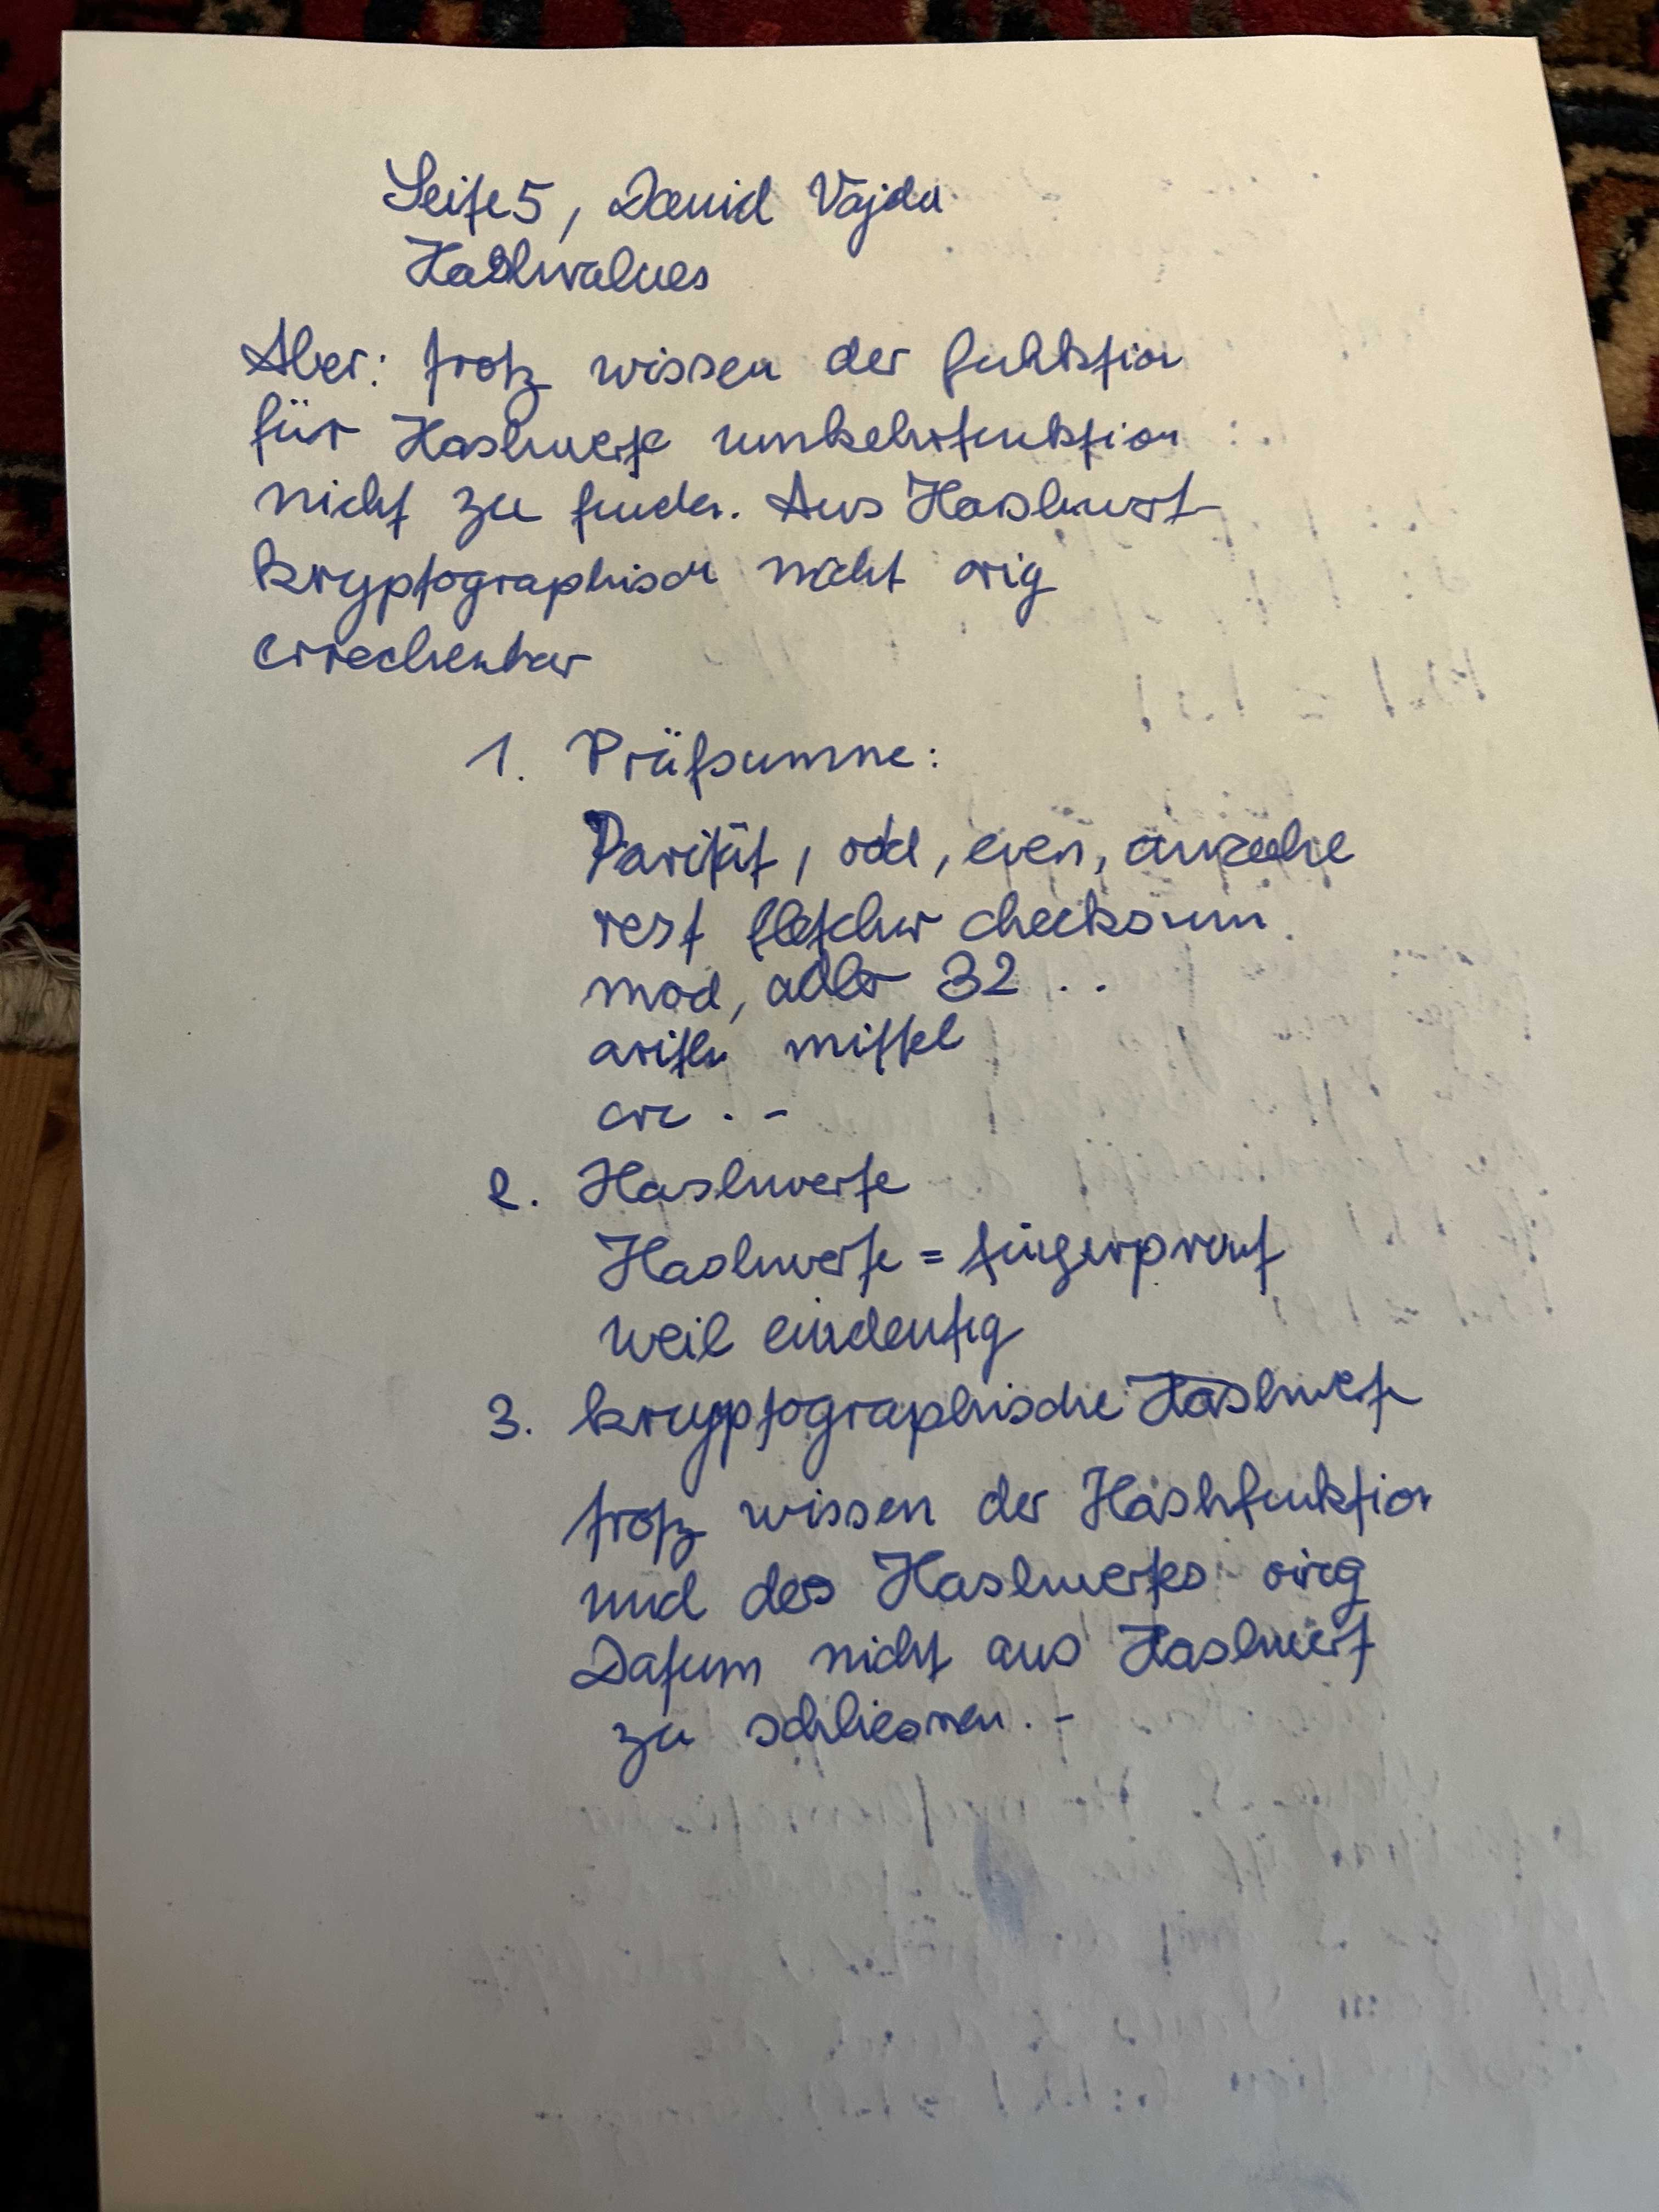 Seite 5, David Vajda
Hashvalues
Aber: trotz wissen der funktion
für Hashwerte umkehrfunktion
nicht zu finden. Aus Hashwert
kryptographisch nicht orig
errechenbar
1. Prüfsumme:
Parität, odd, even,
rest fletcher checksum
mod, adler 32 ..
arith mittel
crc . -
2. Hashwerte
Hashwerte = fingerprint
weil eindeutig
3. kryptographische Hashwerte
trotz wissen der Hashfunktion
und des Hashwertes orig
Datum nicht aus Hashwert
zu schliessen. -